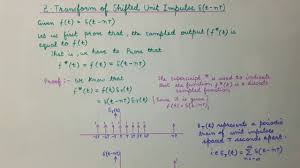 Z-Transform of Shifted Unit Impulse δ(t-nT)
Given f(t) = δ(t-nT)
Let us first prove that, the sampled output (f*(t) is
equal to f(t)
That is, we have to Prove that
f*(t) = f(t) = δ(t-nT)
Proof:- We know that
f*(t) = f(t) δT(t)
= δ(t-nT) δT(t) (Since it is given
f(t) = δ(t-nT))
The superscript * is used to indicate
that the function f*(t) is a discrete
sampled function.
δT(t)
δT(t) represents a periodic
train of unit impulses
spaced T seconds apart.
i.e δT(t) = Σ δ(t-nT)